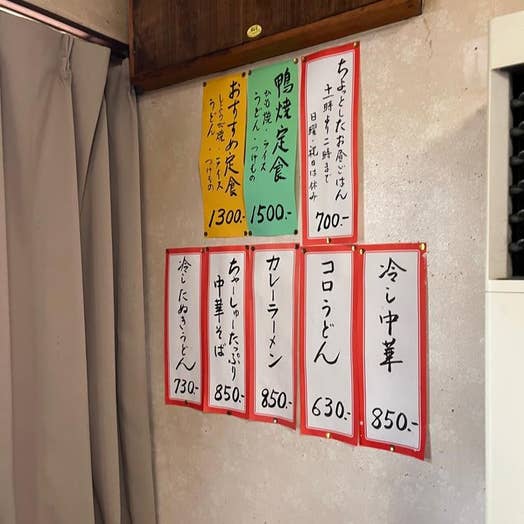 ちょっとしたお昼ごはん
十一時より二時まで
日曜・祝日は休み
700.-
鴨焼定食
うどん・つけもの
1500.-
おすすめ定食
しょうが焼・ライス
うどん・つけもの
1300.-
冷し中華
850.-
コロうどん
630.-
カレーラーメン
850.-
ちゃーしゅーたっぷり
中華そば
850.-
冷したぬきうどん
730.-